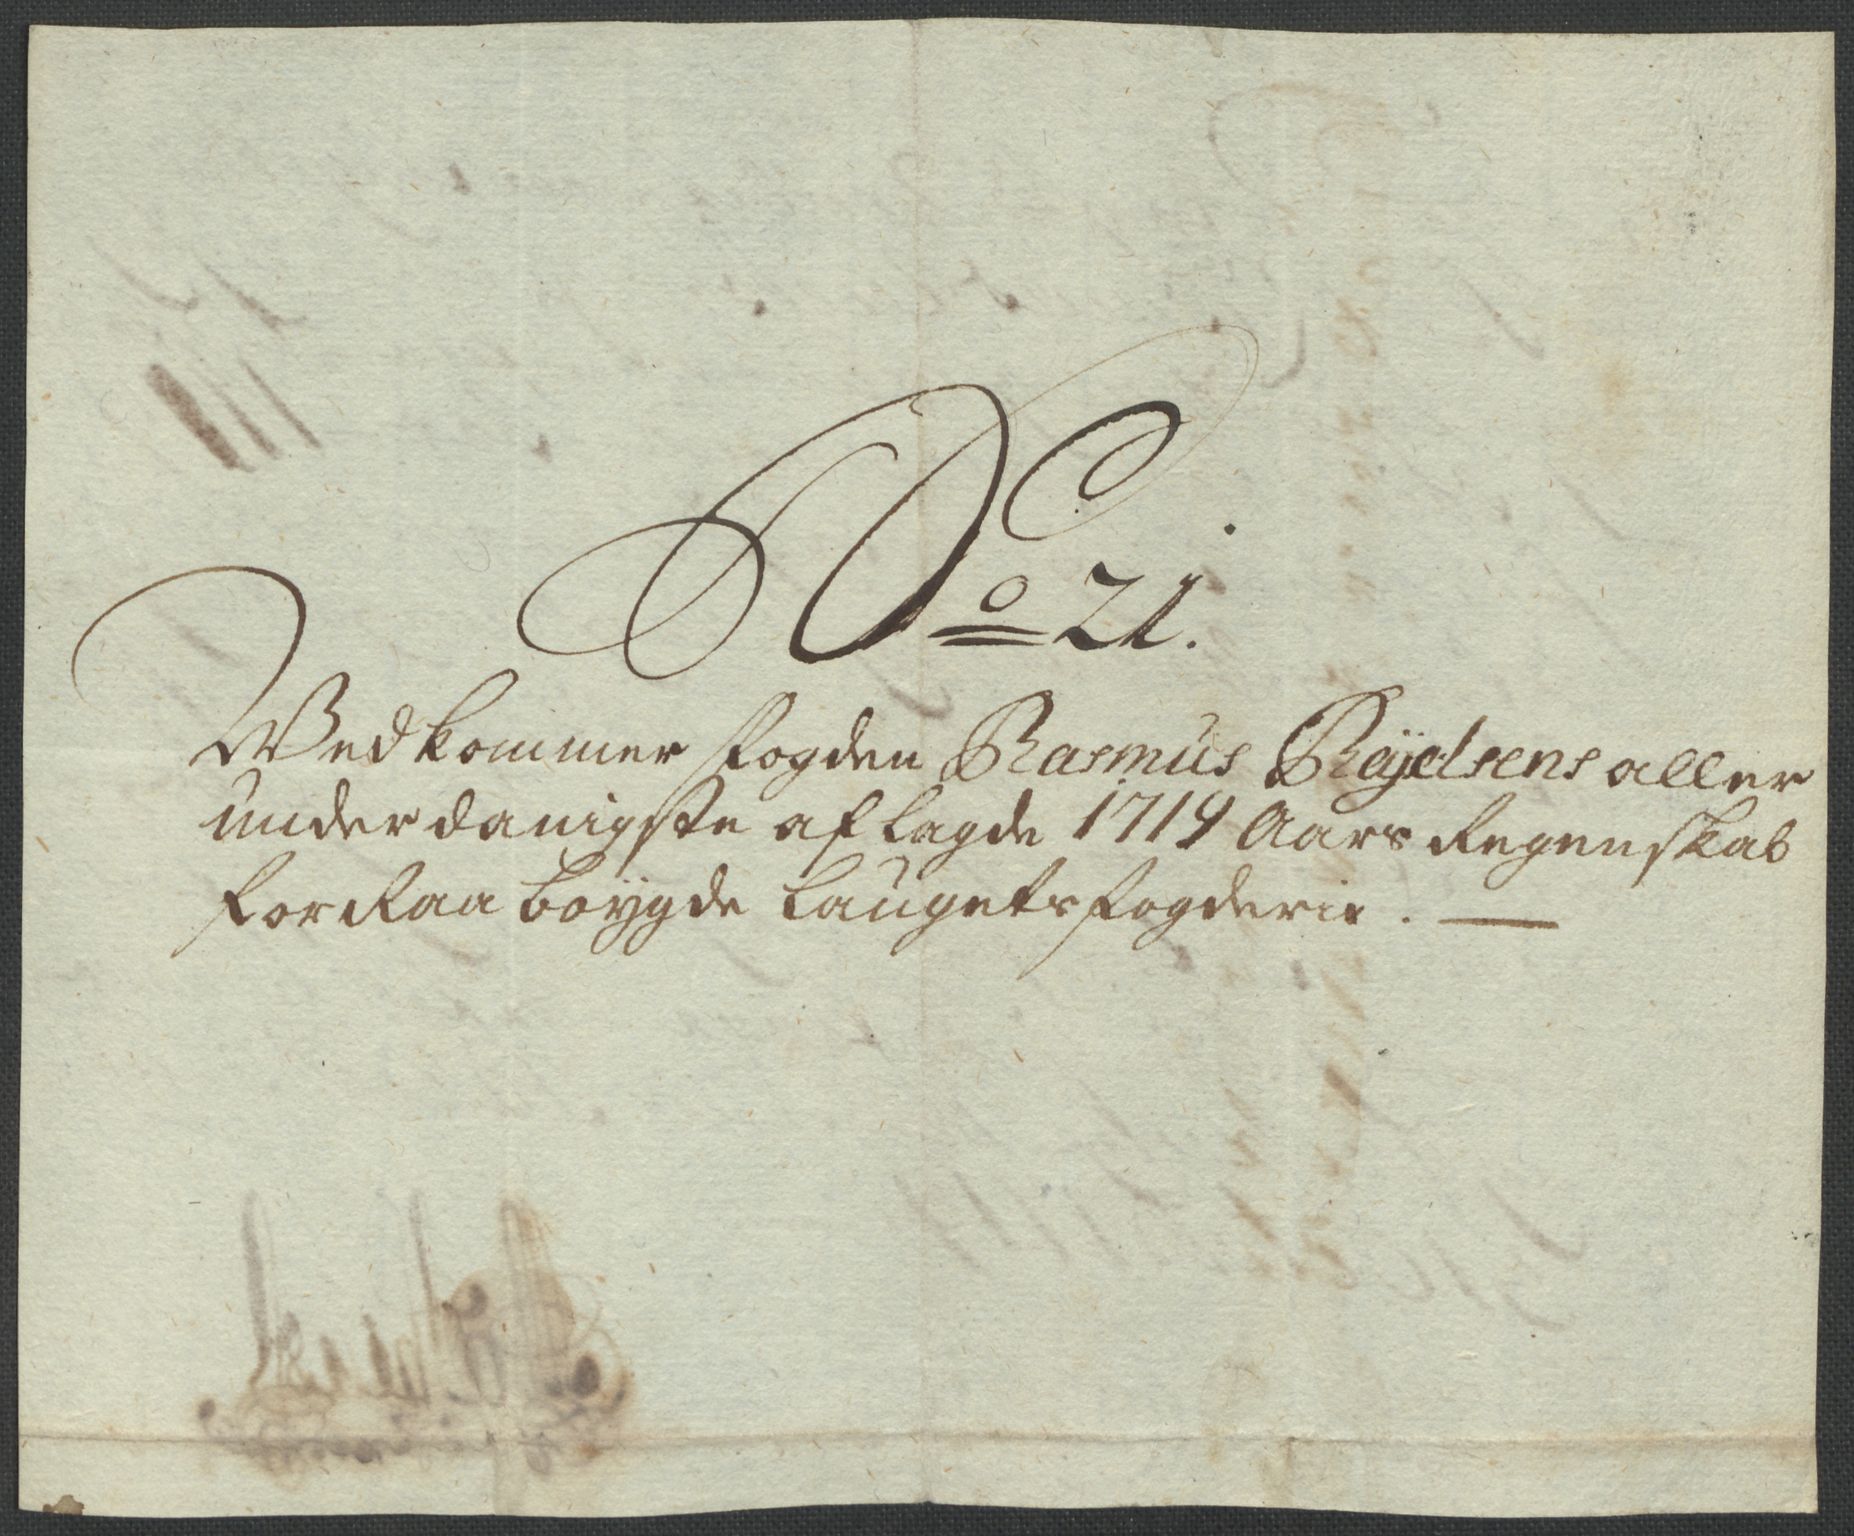 No 21.
Wedkommer fogden Rasmus Rejelsens aller
underdanigste aflagde 1714 Aars Regenskab
for Raabøygde Laugets fogderie.